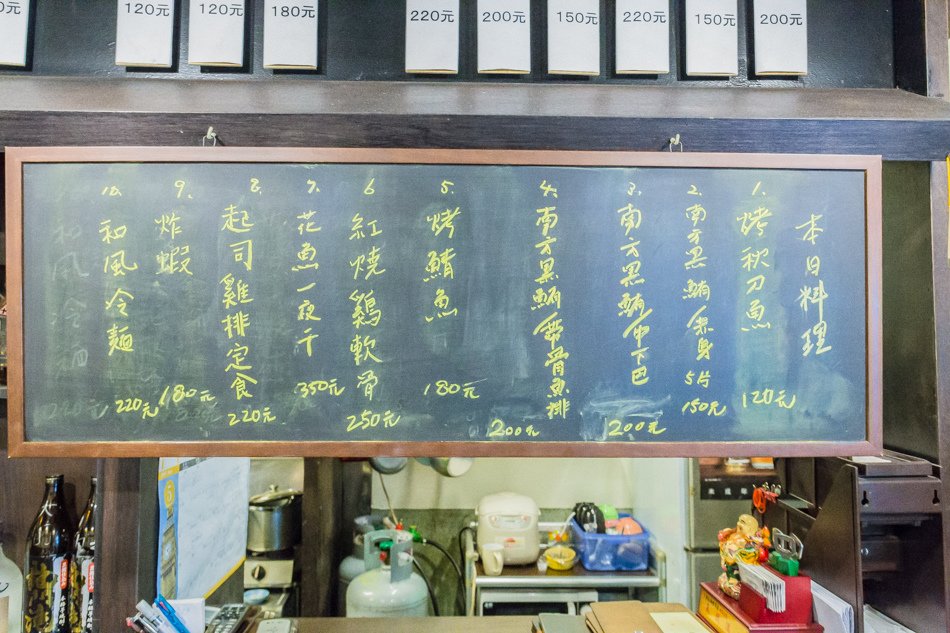 0元
120元
120元
180元
220元
200元
150元
220元
150元
200元
本日料理
1. 烤秋刀魚 120元
2. 南方黑鮪魚身 5片 150元
3. 南方黑鮪魚下巴 200元
4. 南方黑鮪魚帶骨魚排 200元
5. 烤鯖魚 180元
6 紅燒鷄軟骨 250元
7. 花魚一夜干 350元
8. 起司雞排定食 220元
9. 炸蝦 180元
10. 和風冷麵 220元